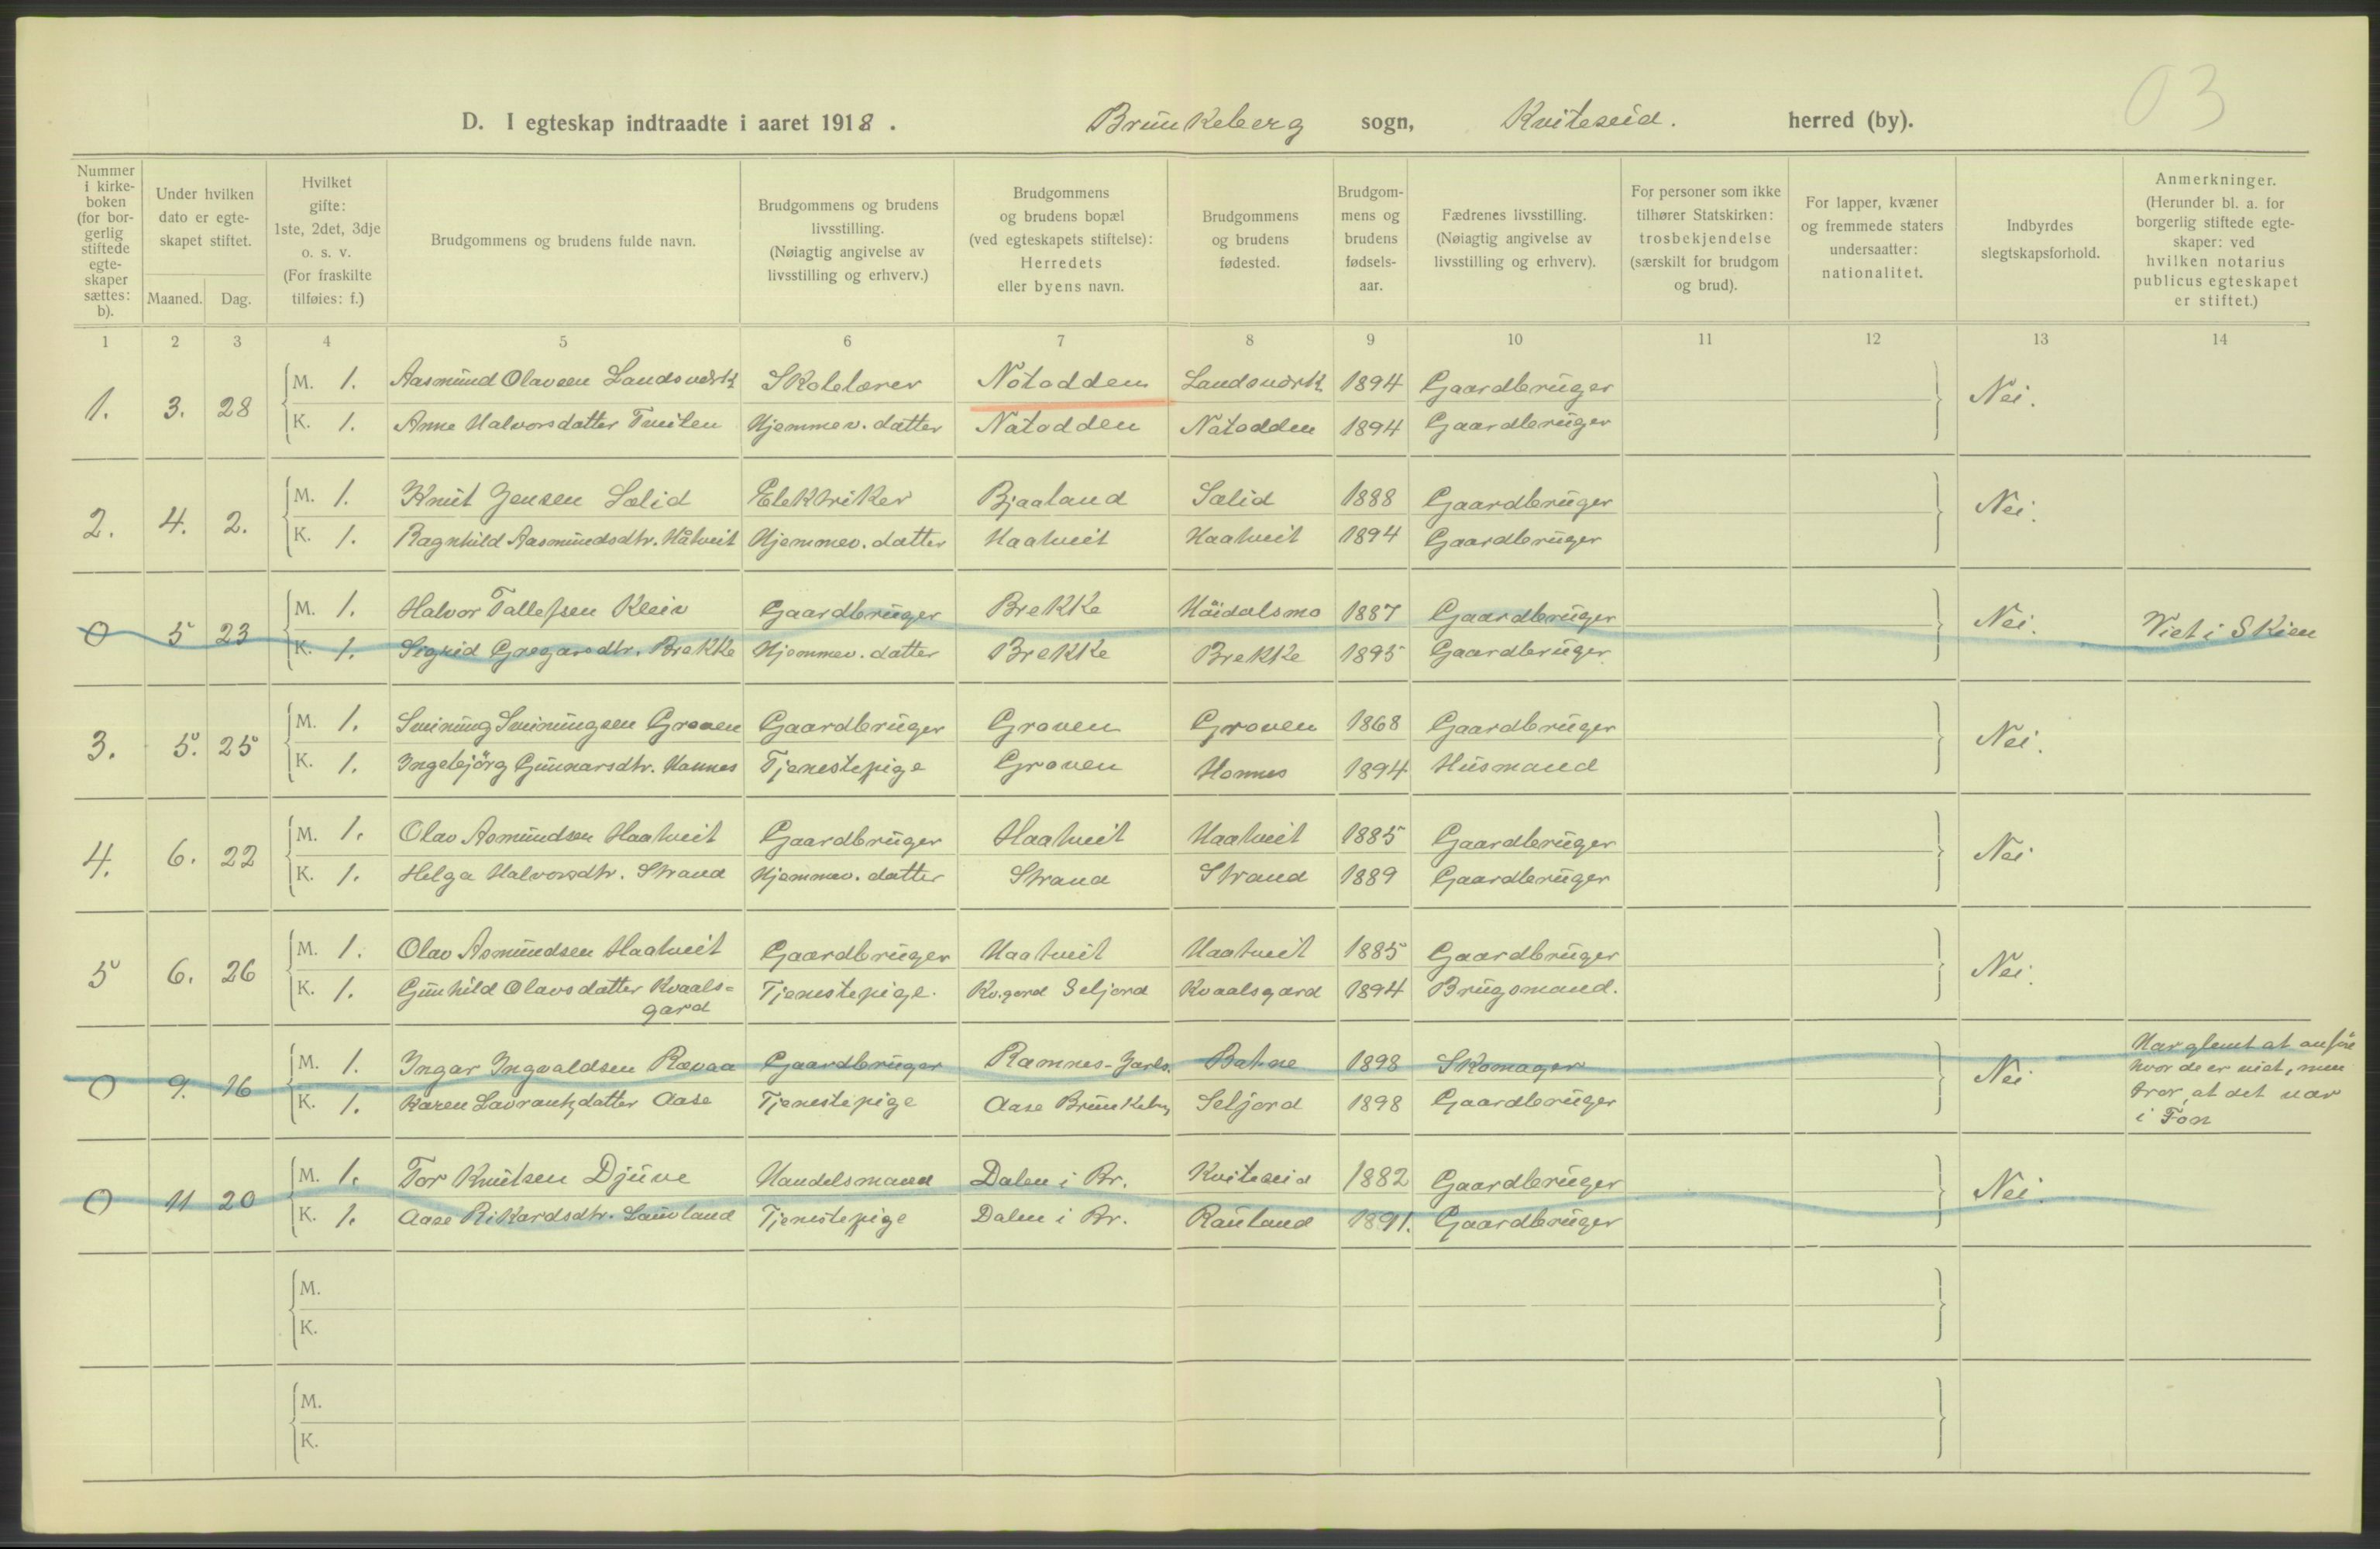 03
D. I egteskap indtraadte i aaret 1918. Brunkeberg sogn, Kviteseid. herred (by).
Nummer i kirke- boken (for bor- gerlig stiftede egte- skaper sættes: b).
Under hvilken dato er egte- skapet stiftet.
Maaned. Dag.
Hvilket gifte: 1ste, 2det, 3dje o. s. v. (For fraskilte tilføies: f.)
Brudgommens og brudens fulde navn.
Brudgommens og brudens livsstilling. (Nøiagtig angivelse av livsstilling og erhverv.)
Brudgommens og brudens bopæl (ved egteskapets stiftelse): Herredets eller byens navn.
Brudgommens og brudens fødested.
Brudgom- mens og brudens fødsels- aar.
Fædrenes livsstilling. (Nøiagtig angivelse av livsstilling og erhverv).
For personer som ikke tilhører Statskirken: trosbekjendelse (særskilt for brudgom og brud).
For lapper, kvæner og fremmede staters undersaatter: nationalitet.
Indbyrdes slegtskapsforhold.
Anmerkninger. (Herunder bl. a. for borgerlig stiftede egte- skaper: ved hvilken notarius publicus egteskapet er stiftet.)
1 2 3 4 5 6 7 8 9 10 11 12 13 14
1. 3. 28 M. 1. Aasmund Olavsen Landsverk Skolelærer Notodden Landsverk 1894 Gaardbruger Nei.
K. 1. Anne Halvorsdatter Tveiten Hjemmev. datter Notodden Notodden 1894 Gaardbruger
2. 4. 2. M. 1. Knut Jensen Sælid Elektriker Bjaaland Sælid 1888 Gaardbruger Nei.
K. 1. Ragnhild Aasmundsdtr. Håtveit Hjemmev. datter Haatveit Haatveit 1894 Gaardbruger
0 5 23 M. 1. Halvor Tallefsen Kleiv Gaardbruger Brekke Höidalsmo 1887 Gaardbruger Nei. Viet i Skien
K. 1. Sigrid Gregarsdtr. Brekke Hjemmev. datter Brekke Brekke 1895 Gaardbruger
3. 5. 25 M. 1. Sveinung Sveinungsen Groven Gaardbruger Groven Groven 1868 Gaardbruger Nei.
K. 1. Ingebjörg Gunnarsdtr. Hannes Tjenestepige Groven Honnes 1894 Husmand
4. 6. 22 M. 1. Olav Asmundsen Haatveit Gaardbruger Haatveit Haatveit 1885 Gaardbruger Nei
K. 1. Helga Halvorsdtr. Strand Hjemmev. datter Strand Strand 1889 Gaardbruger
5 6. 26 M. 1. Olav Asmundsen Haatveit Gaardbruger Haatveit Haatveit 1885 Gaardbruger Nei.
K. 1. Gunhild Olavsdatter Kvaals= Tjenestepige. Kv.gard Seljord Kvaalsgard 1894 Brugsmand.
gard
0 9. 16 M. 1. Ingar Ingvaldsen Revaa Gaardbruger Ramnes-Jarls. Botne 1898 Skomager Nei Har glemt at anföre
hvor de er viet, men
K. 1. Karen Lavrantzdatter Aase Tjenestepige Aase Brunkeberg Seljord 1898 Gaardbruger tror, at det var
i Fon
0 11 20 M. 1. Tor Knutsen Djuve Handelsmand Dalen i Br. Kviteseid 1882 Gaardbruger Nei.
K. 1. Aase Rikardsdtr. Lauvland Tjenestepige Dalen i Br. Rauland 1891. Gaardbruger
M.
K.
M.
K.